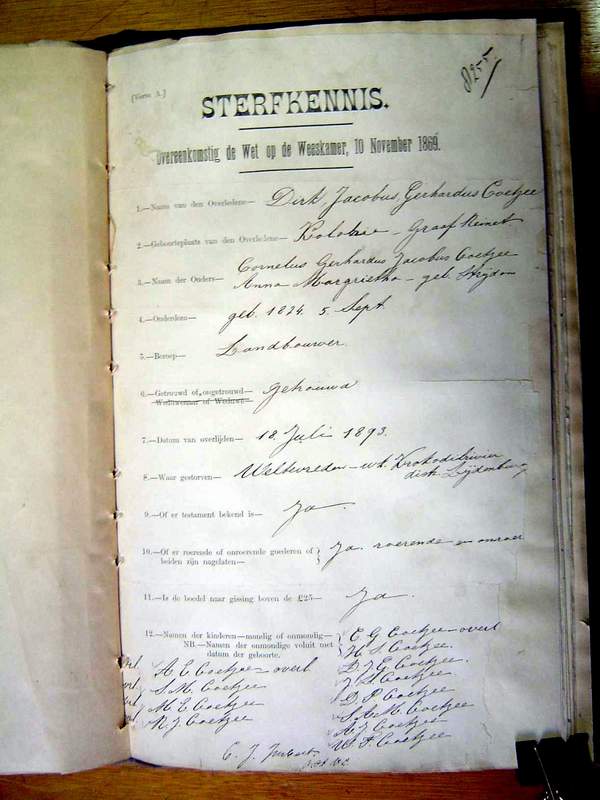 8255
[Vorm A.]
STERFKENNIS.
Overeenkomstig de Wet op de Weeskamer, 10 November 1869.
1.—Naam van den Overledene— Dirk Jacobus Gerhardus Coetzee
2.—Geboorteplaats van den Overledene— Kolonie – Graaf Reinet
3.—Namen der Ouders— Cornelus Gerhardus Jacobus Coetzee
Anna Margrietha – geb. Strijdom
4.—Ouderdom— geb. 1824. 5. Sept.
5.—Beroep— Landbouwer
6.—Getrouwd of ongetrouwd— getrouwd
Weduwenaar of Weduwe—
7.—Datum van overlijden— 18. Juli 1893.
8.—Waar gestorven— Weltevreden – wk. Krokodilrivier
distr. Lijdenburg
9.—Of er testament bekend is— Ja.
10.—Of er roerende of onroerende goederen of
beiden zijn nagelaten— Ja. roerende en onroer
11.—Is de boedel naar gissing boven de £25— Ja.
12.—Namen der kinderen—mondig of onmondig—
NB.—Namen der onmondige voluit met
datum der geboorte.
C G Coetzee – overl
H S. Coetzee.
D J G. Coetzee.
J S. Coetzee
D P. Coetzee
S A M. Coetzee
A J Coetzee
W F. Coetzee
A E Coetzee – overl
S. M. Coetzee
M E Coetzee
N. J. Coetzee
C. J.